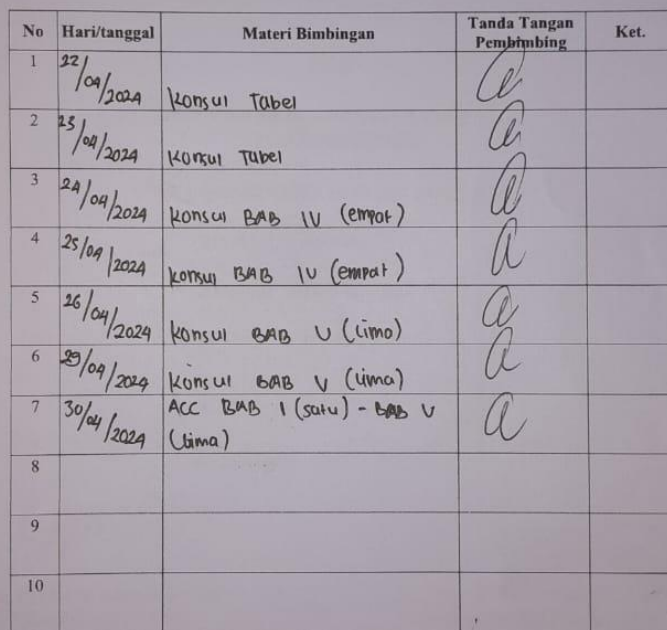 No Hari/tanggal Materi Bimbingan Tanda Tangan Pembimbing Ket.
1 22/04/2024 Konsul Tabel
2 23/04/2024 Konsul Tabel
3 24/04/2024 Konsul BAB IV (empat)
4 25/04/2024 Konsul BAB IV (empat)
5 26/04/2024 Konsul BAB V (Lima)
6 29/04/2024 Konsul BAB V (Lima)
7 30/04/2024 ACC BAB I (satu) - BAB V
(Lima)
8
9
10